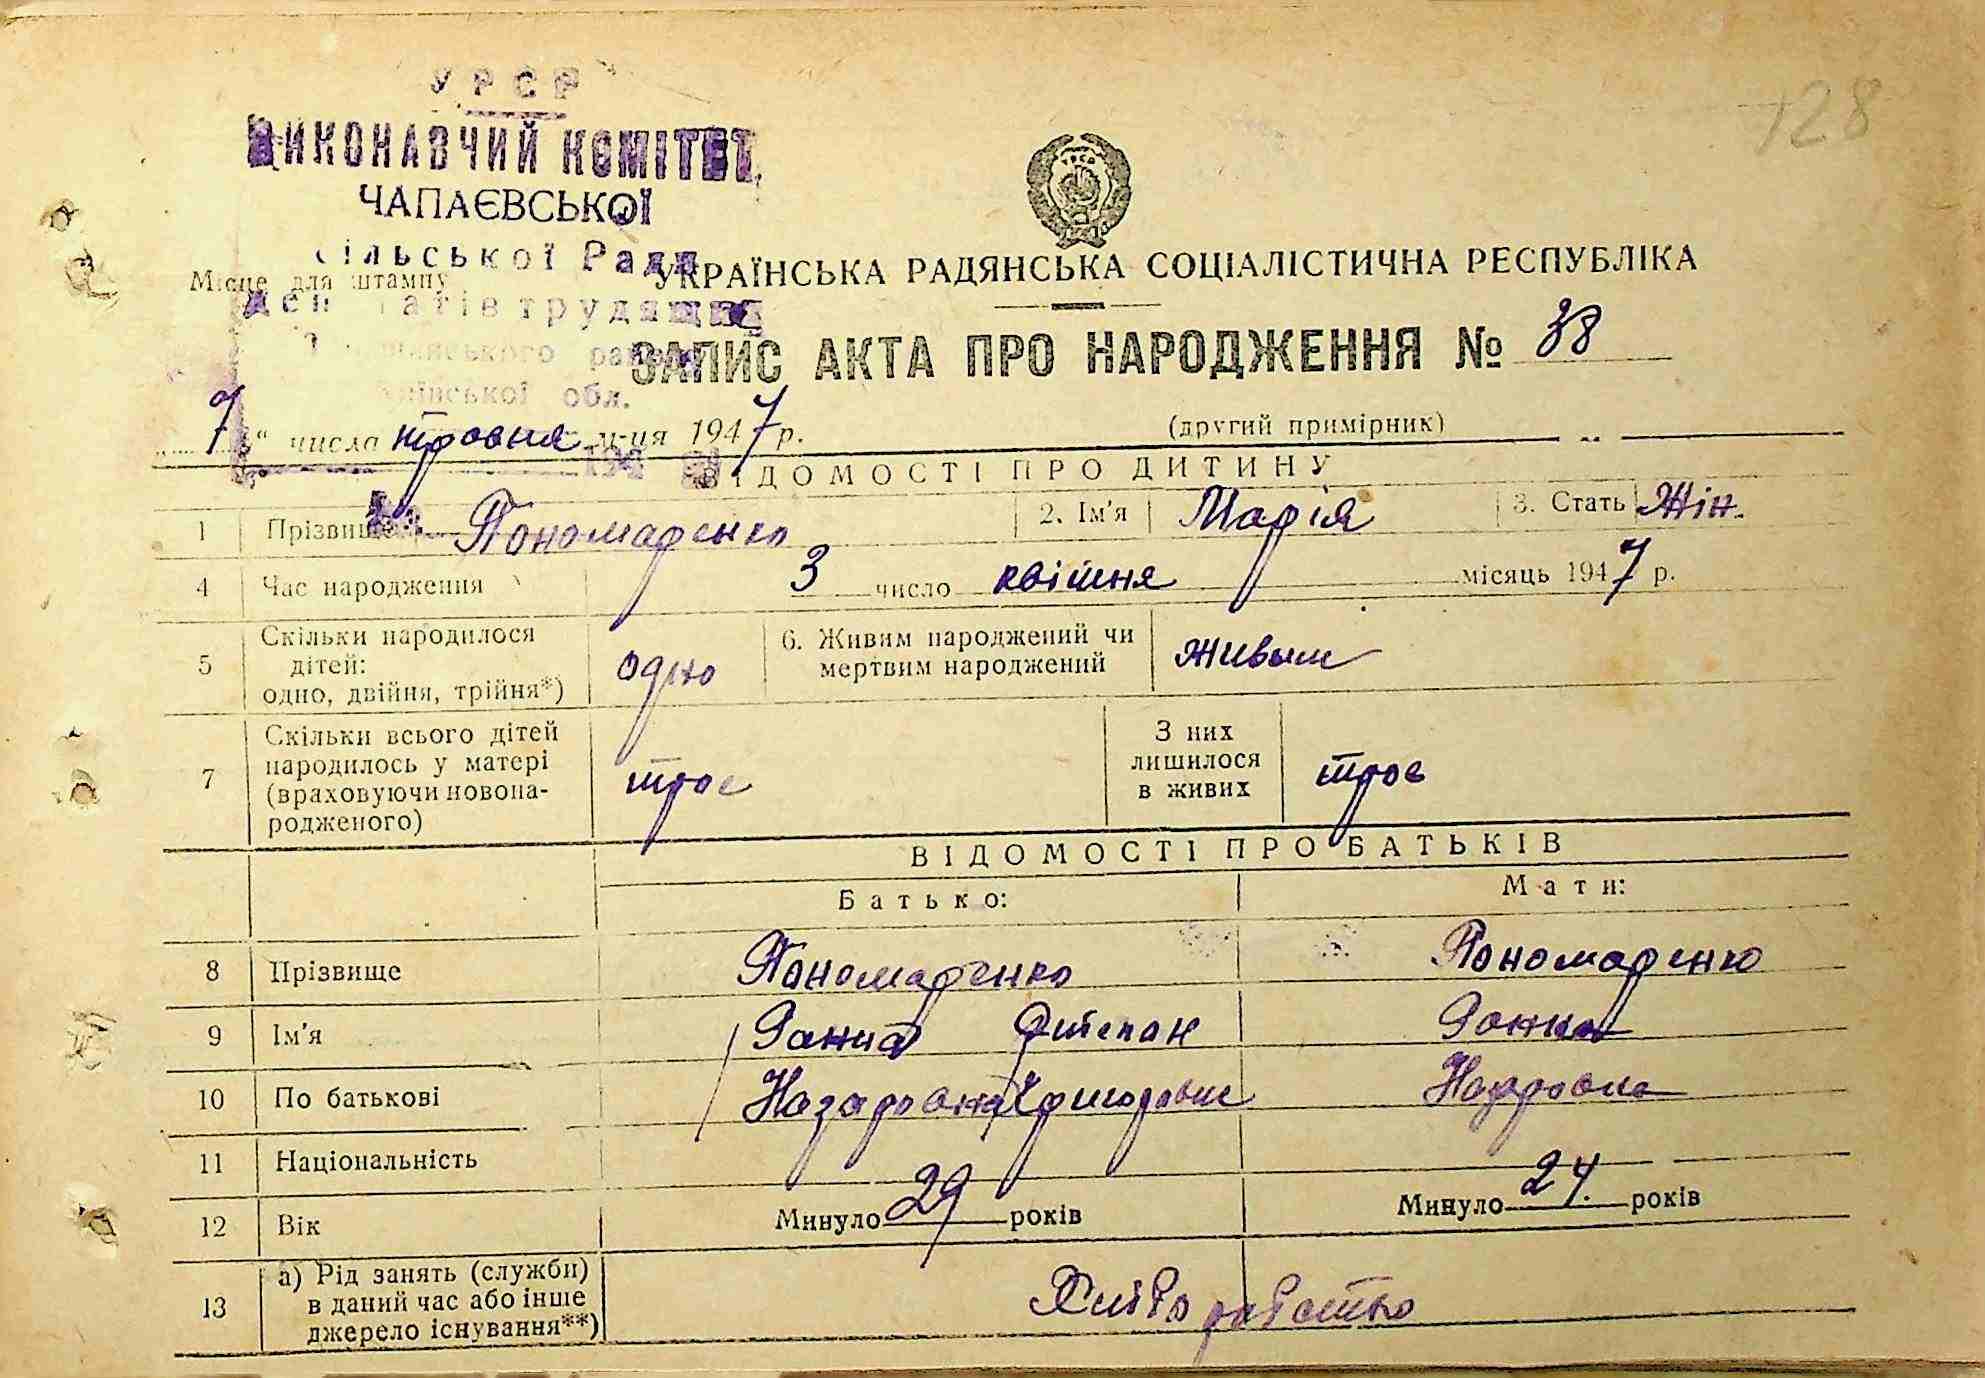 128
УРСР
ВИКОНАВЧИЙ КОМІТЕТ
ЧАПАЄВСЬКОЇ
сільської Ради
Місце для штампу
УКРАЇНСЬКА РАДЯНСЬКА СОЦІАЛІСТИЧНА РЕСПУБЛІКА
депутатів трудящих
району
ЗАПИС АКТА ПРО НАРОДЖЕННЯ № 38
обл.
„7“ числа травня м-ця 1947 р. (другий примірник)
ВІДОМОСТІ ПРО ДИТИНУ
1 Прізвище Пономаренко 2. Ім'я Марія 3. Стать Жін.
4 Час народження 3 число квітня місяць 1947 р.
5 Скільки народилося дітей: одно, двійня, трійня*) одно 6. Живим народжений чи мертвим народжений живым
7 Скільки всього дітей народилось у матері (враховуючи новонародженого) троє З них лишилося в живих троє
ВІДОМОСТІ ПРО БАТЬКІВ
Батько: Мати:
8 Прізвище Пономаренко Пономаренко
9 Ім'я Ганна Степан Ганна
10 По батькові Назаровна Григорович Назаровна
11 Національність
12 Вік Минуло 29 років Минуло 24. років
13 а) Рід занять (служби) в даний час або інше джерело існування**) Хліборобство